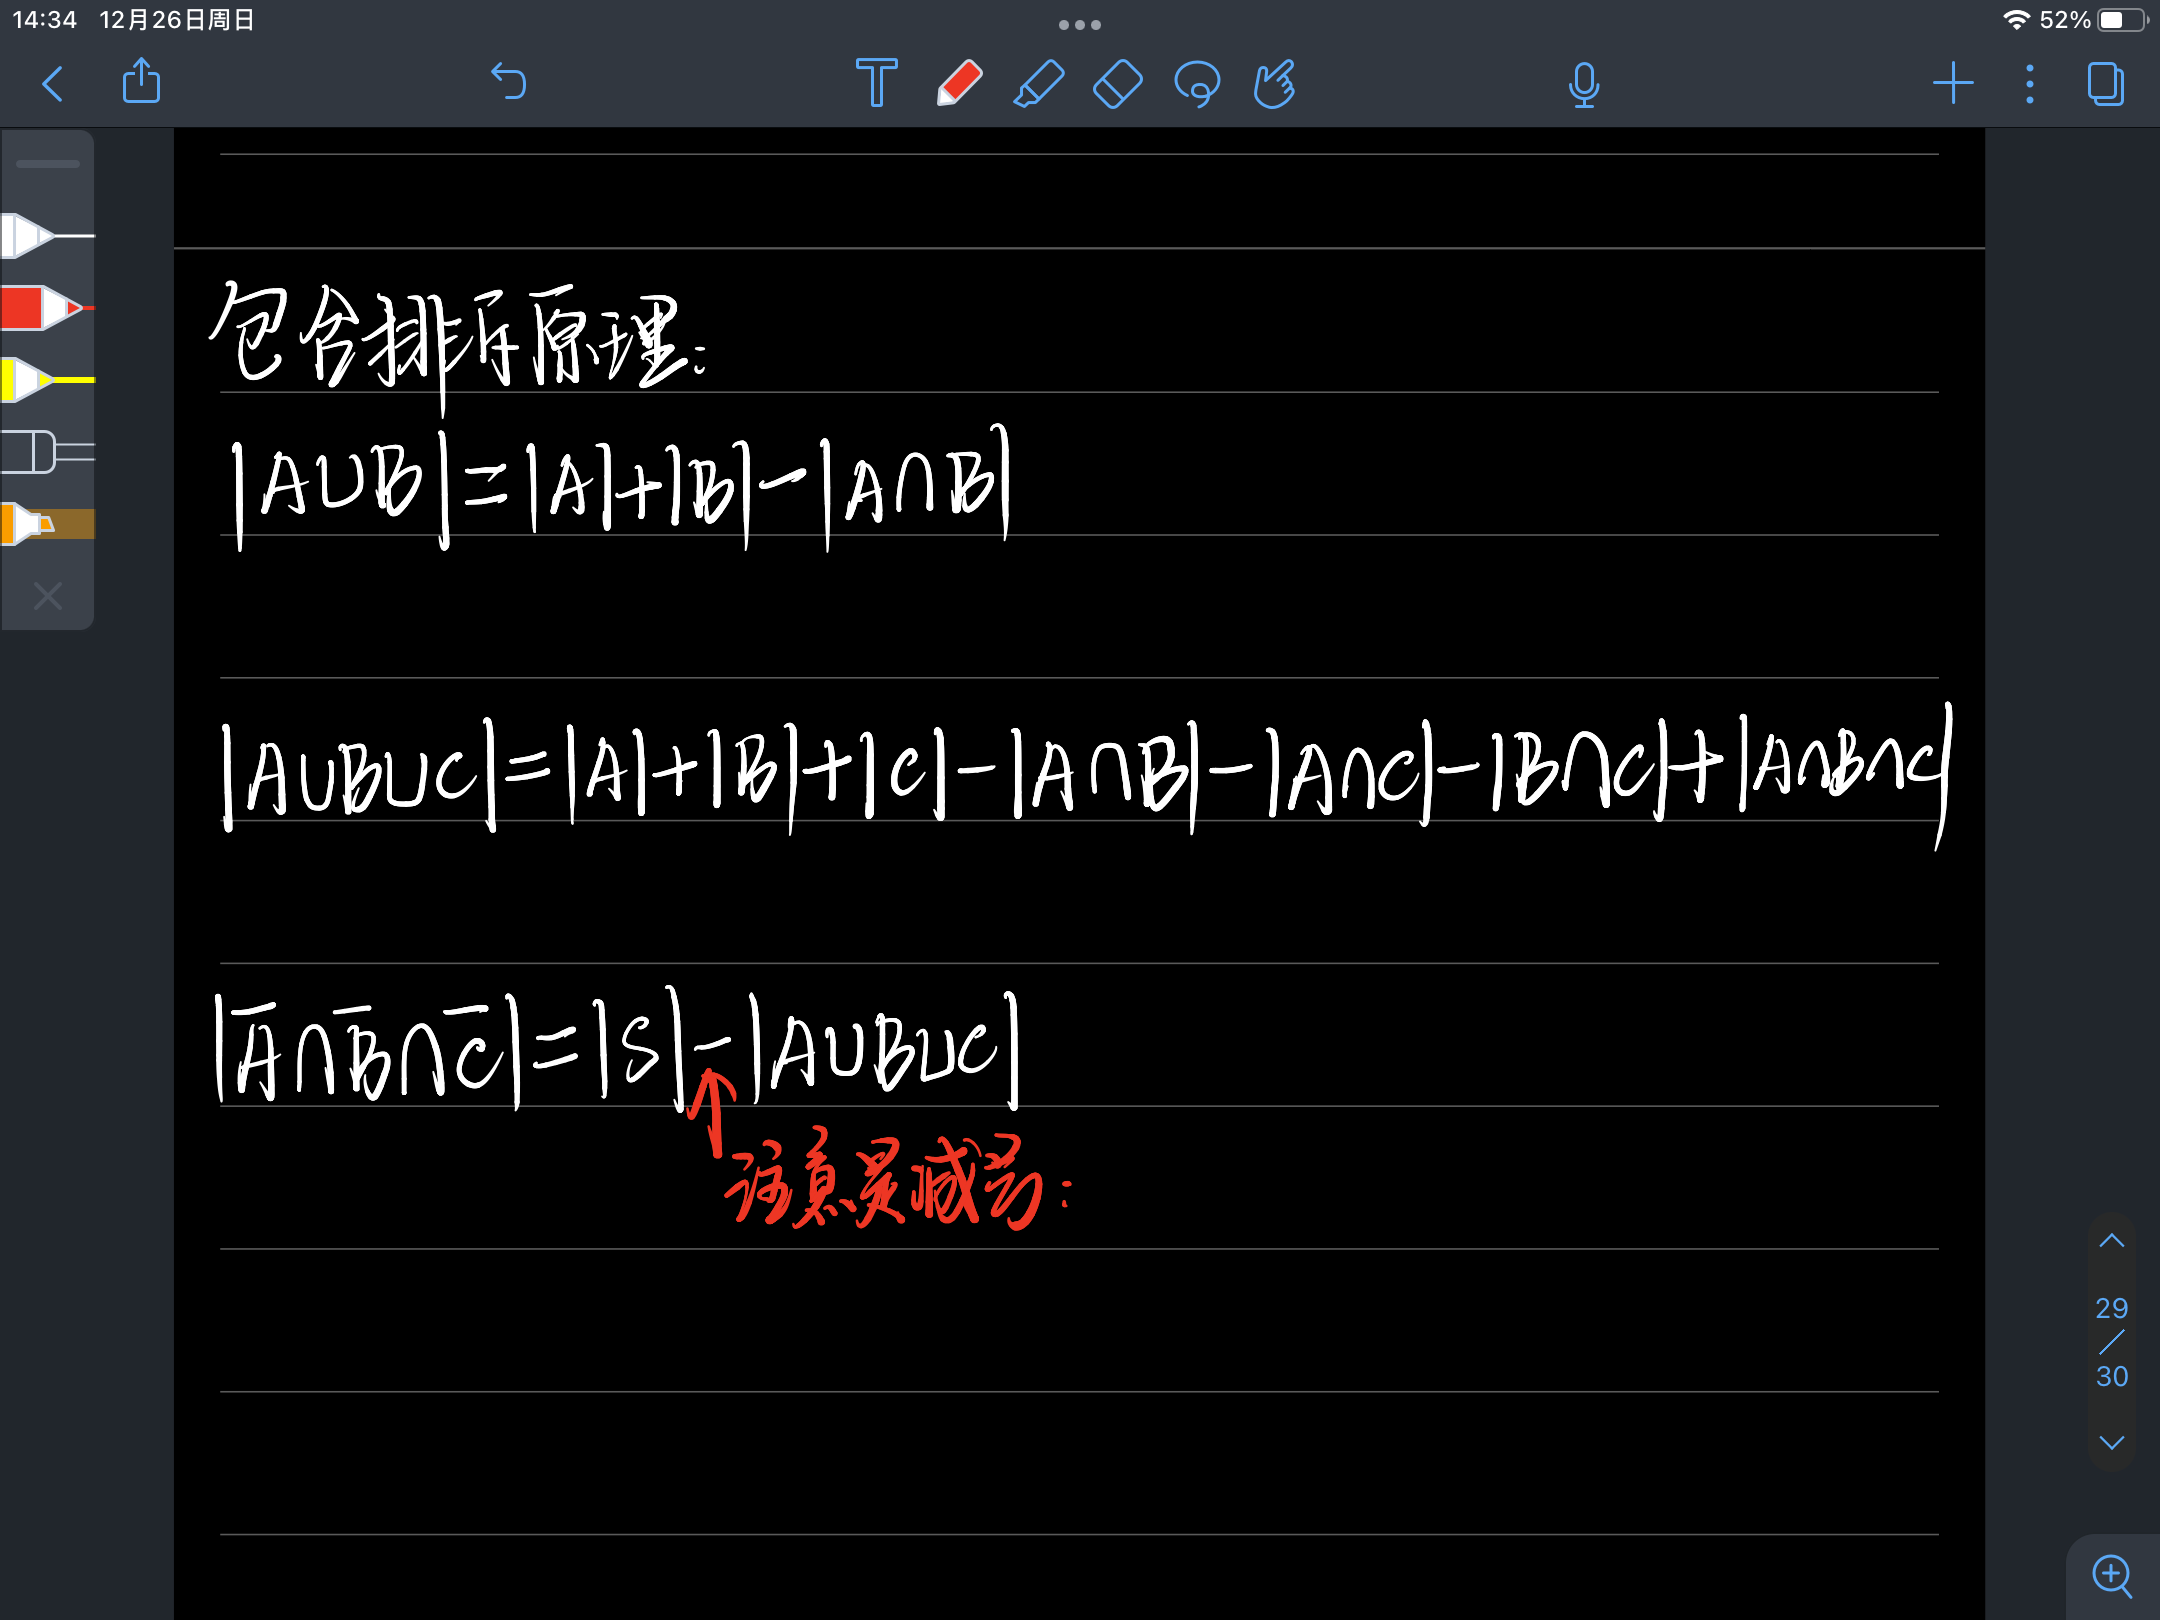 14:34 12月26日周日
52%
包含排斥原理:
|A∪B|=|A|+|B|-|A∩B|
|A∪B∪C|=|A|+|B|+|C|-|A∩B|-|A∩C|-|B∩C|+|A∩B∩C|
|A̅∩B̅∩C̅|=|S|-|A∪B∪C|
注意是减号:
29
/
30